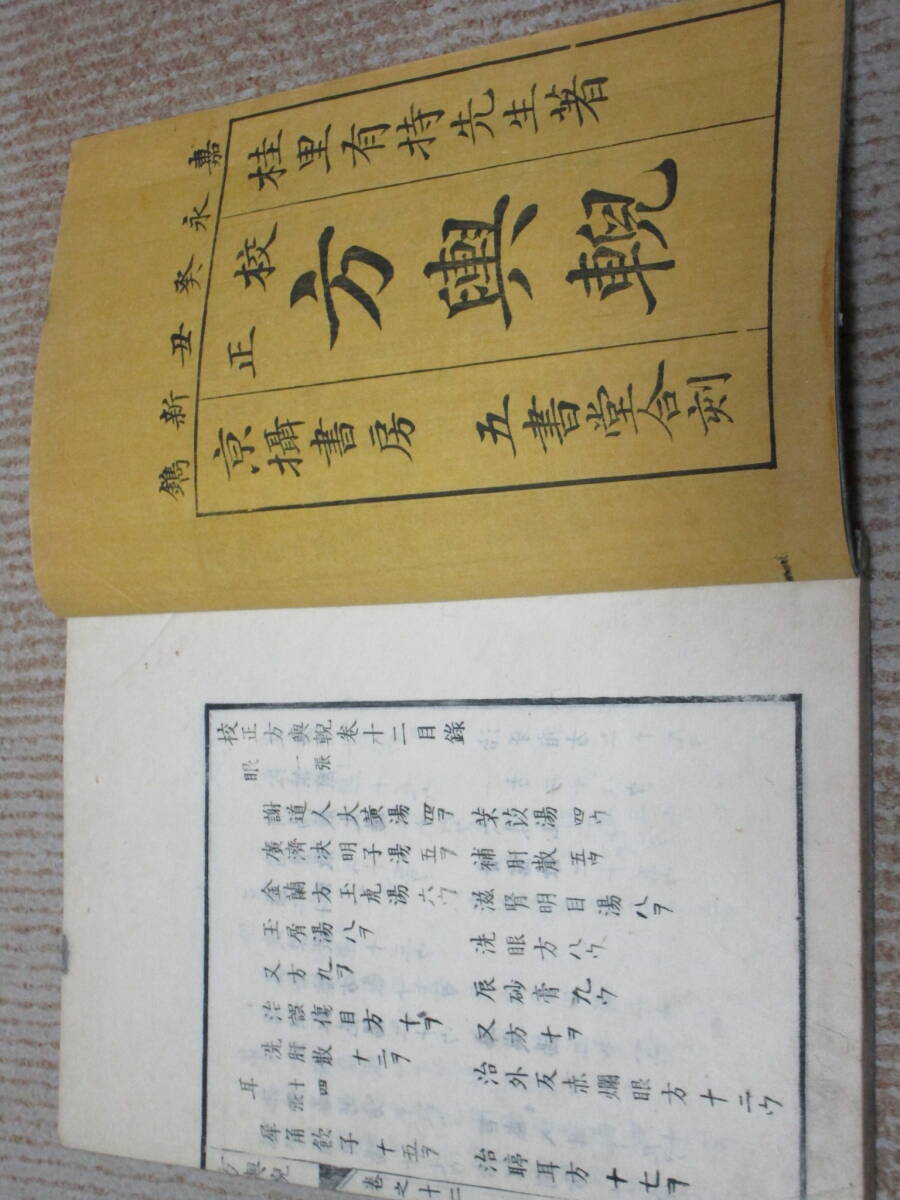 嘉永癸丑新鐫
桂里有持先生著
校正
方輿輗
京攝書房 五書堂合刻
校正方輿輗卷十二目錄
眼 一張
謝道人大黃湯 四ヲ 茱苡湯 四ウ
廣濟決明子湯 五ヲ 補肝散 五ウ
金蘭方玉虎湯 六ウ 滋腎明目湯 八ヲ
玉屑湯 八ヲ 洗眼方 八ウ
又方 九ヲ 辰砂膏 九ウ
治誤傷目方 十ヲ 又方 十ヲ
洗肝散 十二ヲ 治外反赤爛眼方 十二ウ
耳 十四張
犀角飲子 十五ヲ 治聤耳方 十七ヲ
卷之十二